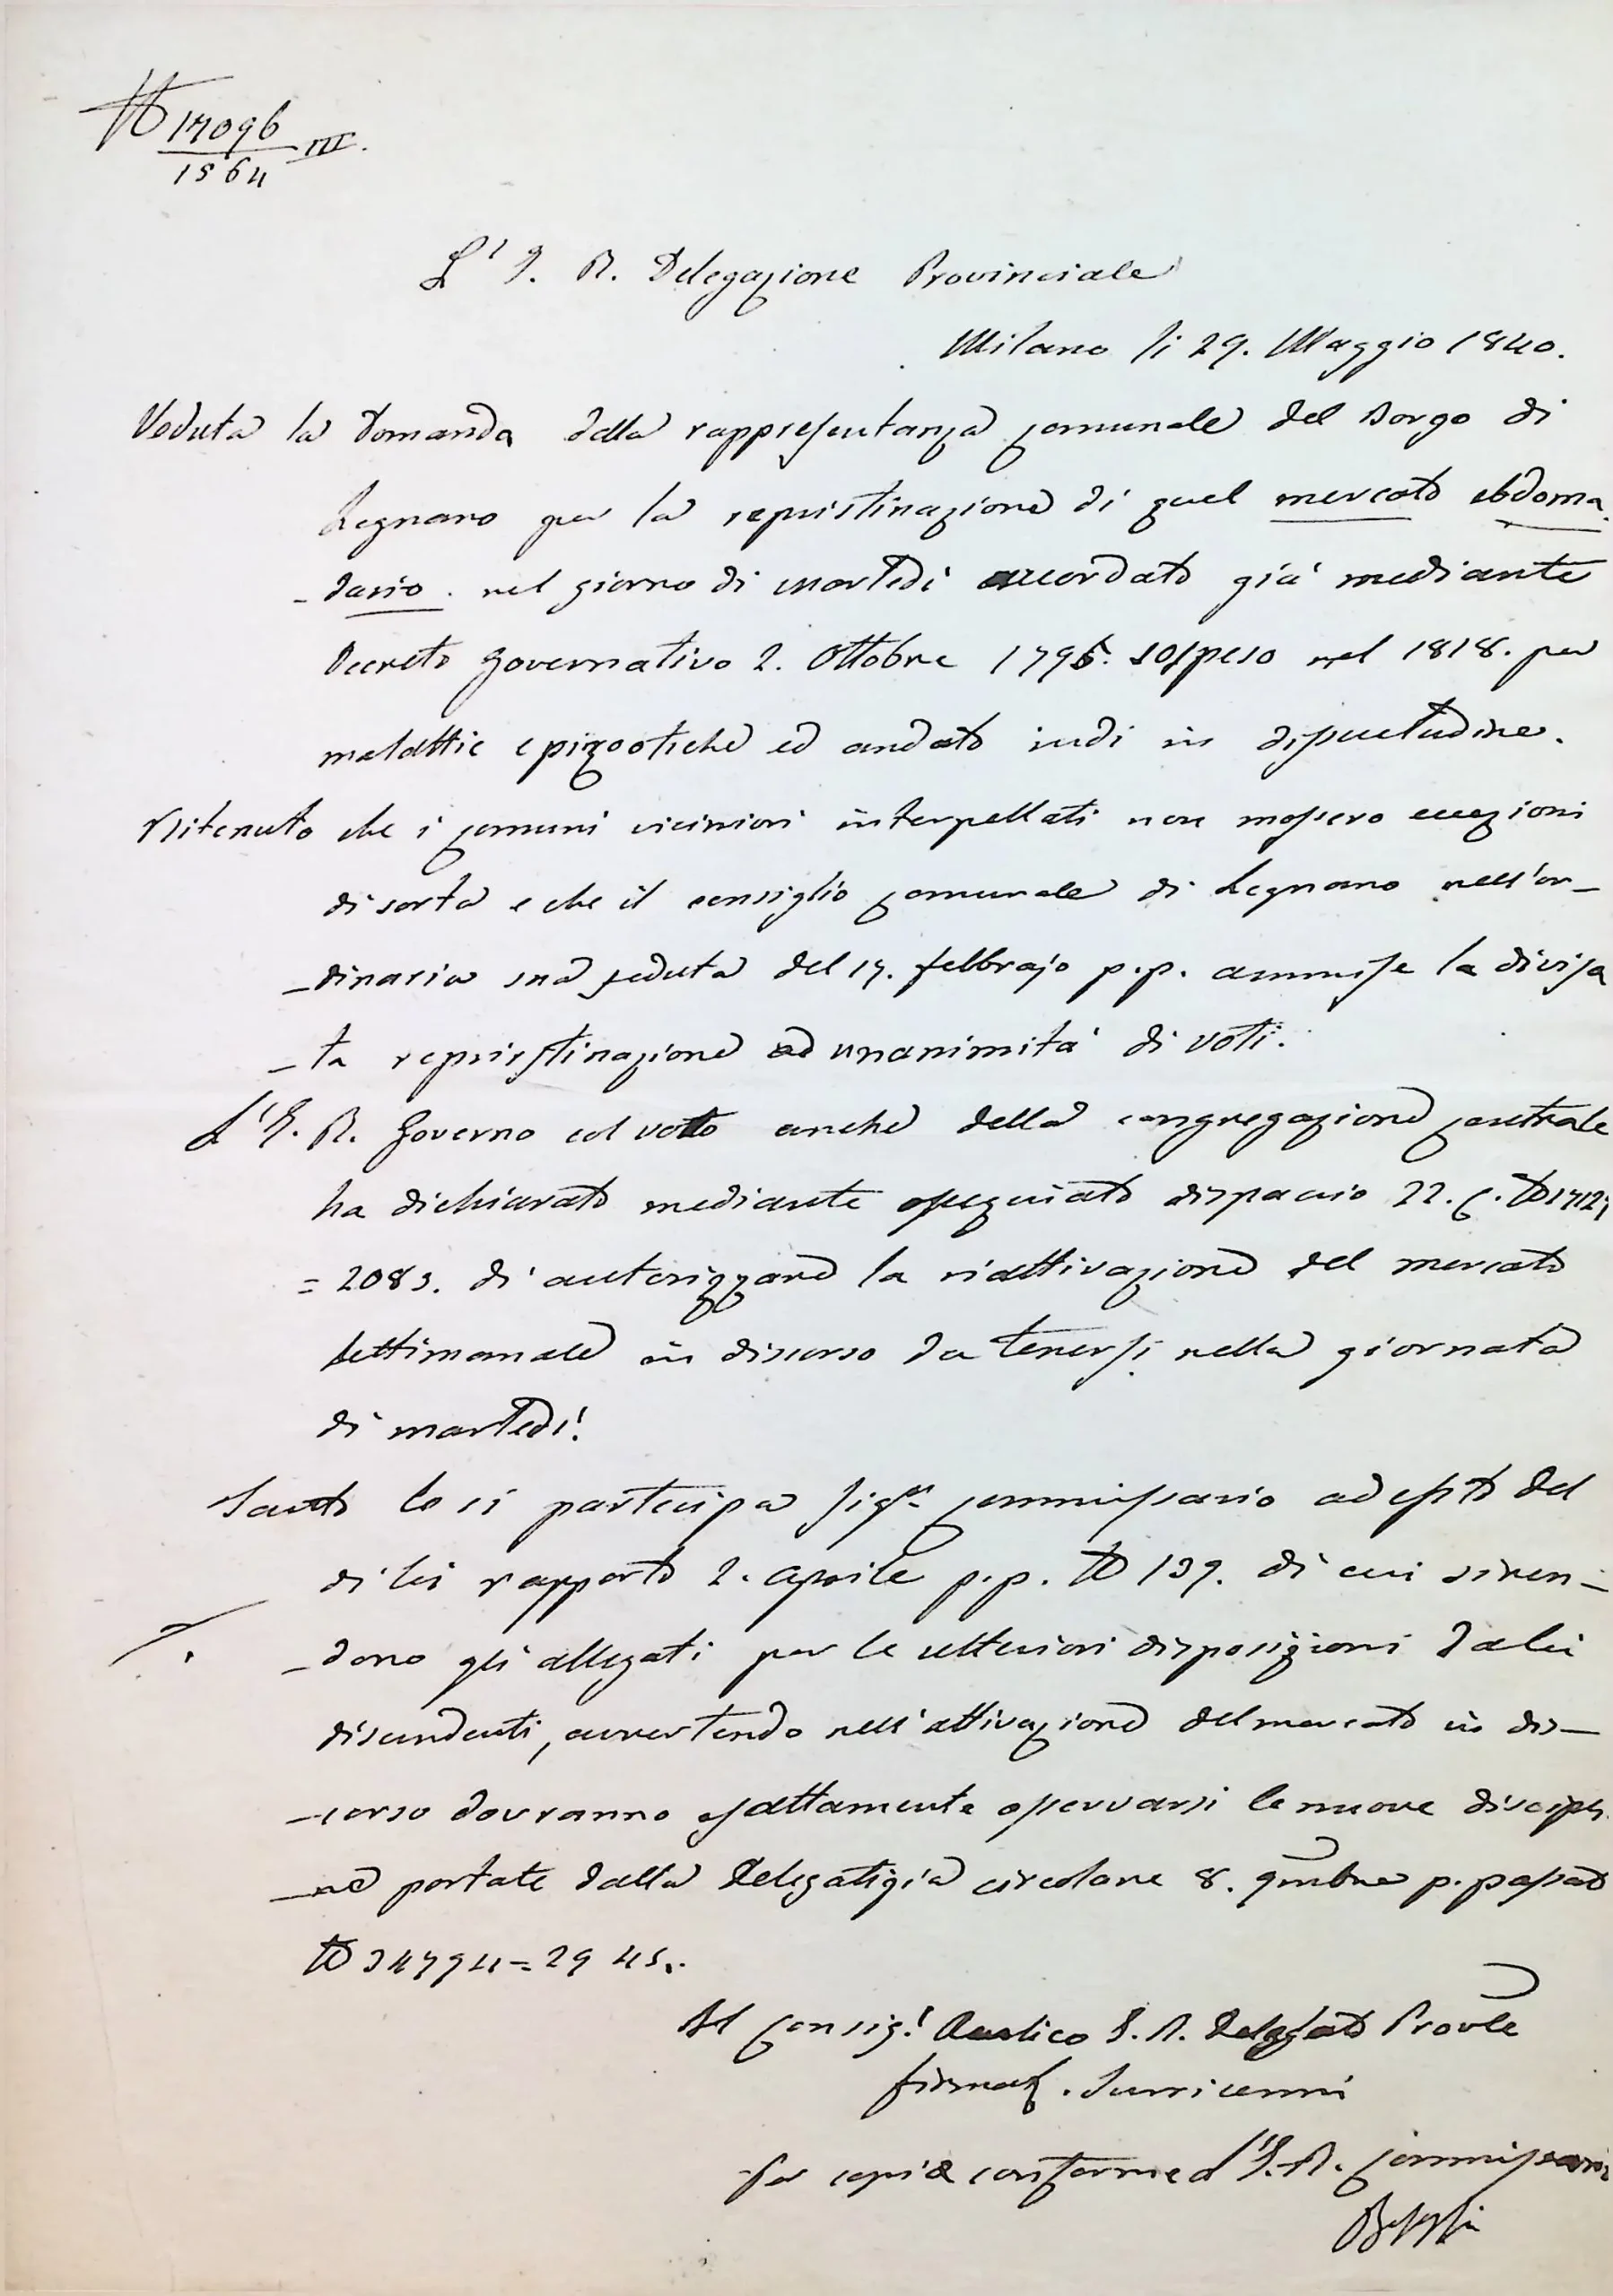 N 17096
1564 III.
L' I. R. Delegazione Provinciale
Milano li 29. Maggio 1840.
Veduta la Domanda della rappresentanza comunale del Borgo di
Legnano per la repristinazione di quel mercato ebdoma
-dario. nel giorno di martedì accordato già mediante
Decreto Governativo 2. Ottobre 1795. sospeso nel 1818. per
malattie epizootiche ed andato indi in dissuetudine.
Ritenuto che i comuni viciniori interpellati non mossero eccezioni
di sorta e che il consiglio comunale di Legnano nell'or-
-dinaria sua seduta del 17. febbrajo p.p. ammise la divisa
-ta repristinazione ad unanimità di voti.
L'I. R. Governo col voto anche della congregazione centrale
ha dichiarato mediante ossequiato dispaccio 22. c. N
= 2083. di autorizzare la riattivazione del mercato
settimanale in discorso da tenersi nella giornata
di martedì.
Tanto le si partecipa Sigr. commissario ad esito del
di lei rapporto 2. aprile p.p. N 139. di cui si ren-
-dono gli allegati per le ulteriori disposizioni da lei
discendenti, avvertendo nell'attivazione del mercato in dis-
-corso dovranno esattamente osservarsi le nuove discipli
-ne portate dalla Delegatizia circolare 8. 9mbre p. passato
N 34794 = 2945.
Al Consig.e Aulico I. R. Delegato Provle
firmat.
Per copia conforme d I. R. Commissario